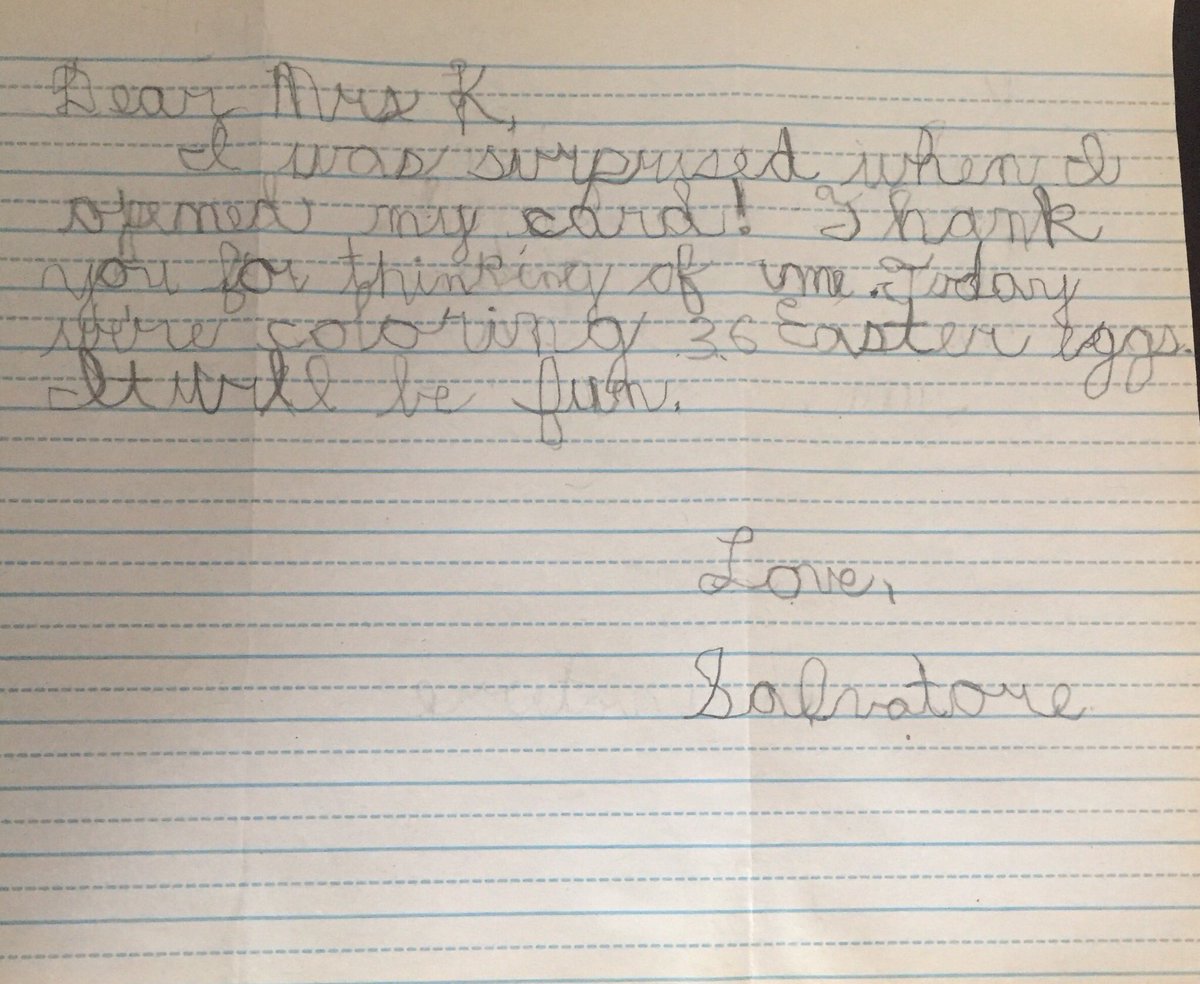 Dear Mrs K,
I was surprised when I
opened my card! Thank
you for thinking of me. Today
we're coloring 36 Easter eggs.
It will be fun.
Love,
Salvatore